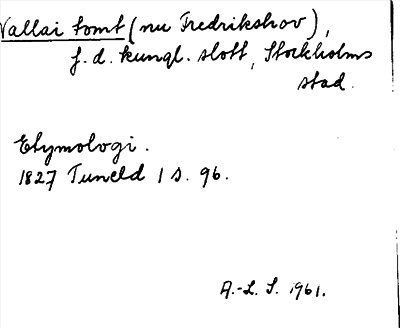 Vallai tomt (nu Fredrikshov),
f.d. kungl. slott, Stockholms
stad.
Etymologi.
1827 Tuneld 1 s. 96.
A.-L. S. 1961.